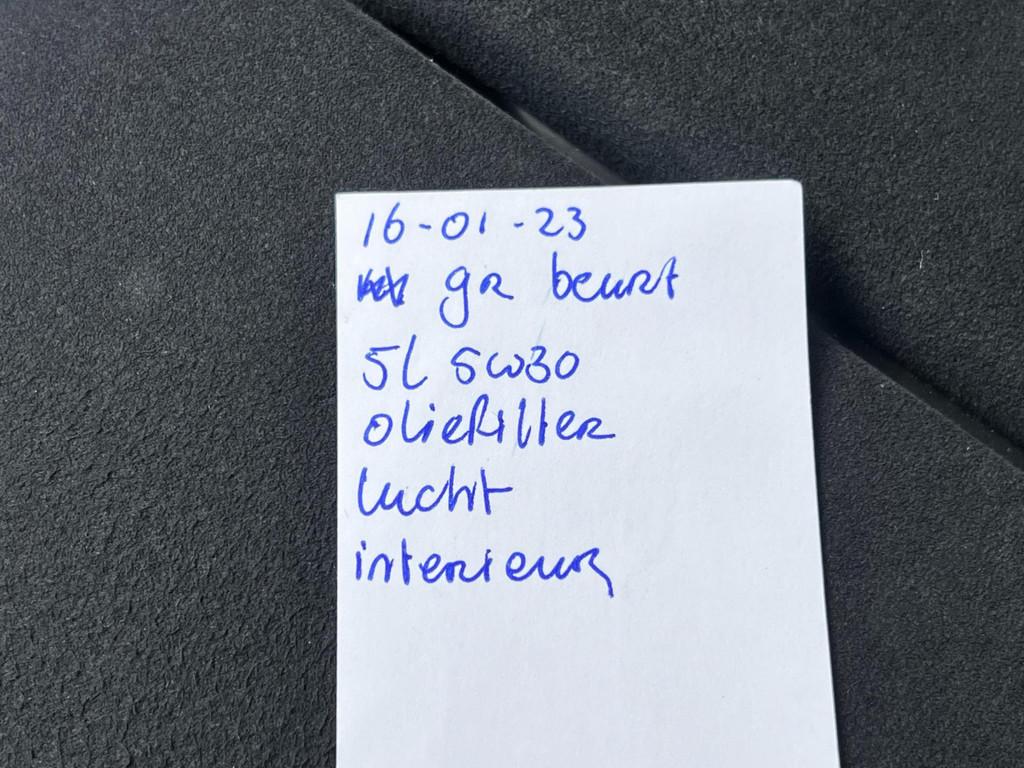 16-01-23
gr beurt
5l 5w30
oliefilter
lucht
interieur